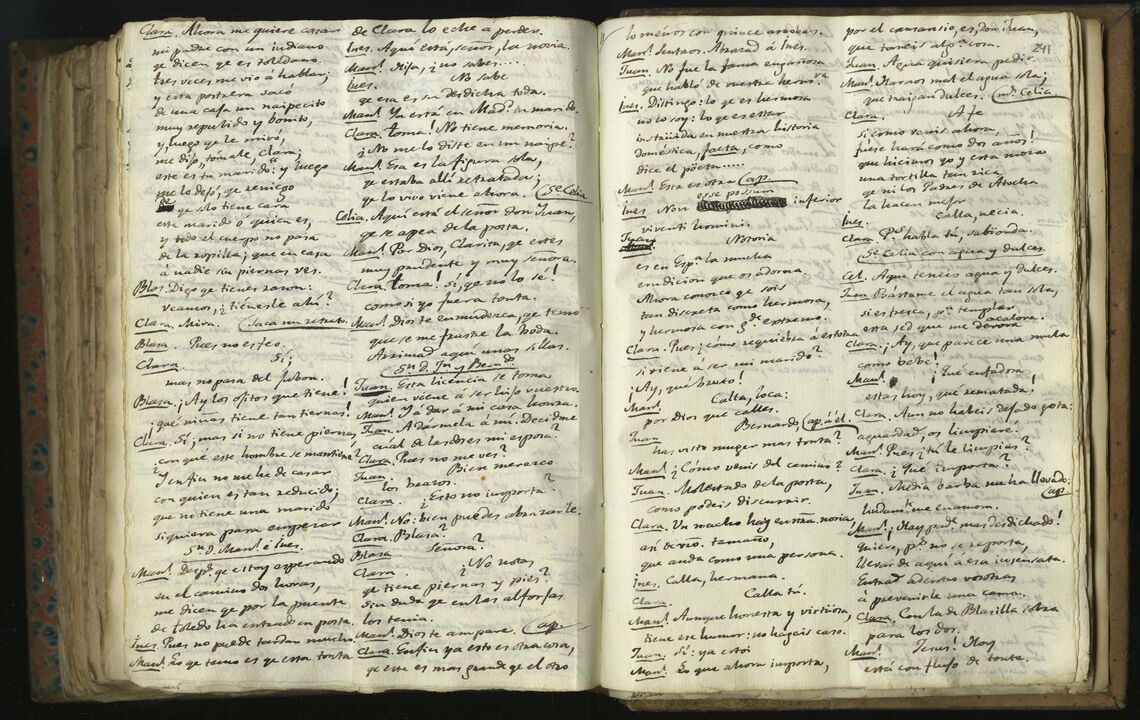 Clara. Ahora me quiere casar
mi padre con un indiano
qe dicen qe es toledano.
tres veces me vió á hablar;
y esta postrera sacó
de una caja un naipecito
muy repulido y bonito,
y, luego qe le miró,
me dijo, tómale, Clara;
este es tu marido: y luego
me lo dejó, qe reniego
qe solo tiene cara
este marido ó quien es,
y todo el cuerpo no pasa
de la ropilla; que en casa
á nadie sin piernas ves.
Blas. Digo qe tienes razon:
veamos; ¿tienesle ahí?
Clara. Mira. (Saca un retrato.
Blasa. Pues no es feo.
Clara. Sí;
mas no pasa del jubon.
Blasa. ¡Ay los ojitos que tiene!
¡qué niñas tiene tan tiernas!
Clara. Sí; mas si no tiene piernas,
¿con qué este hombre se mantiene?
Y en fin no me he de casar
con quien es tan reducido;
que no tiene una marido
siquiera para empezar
Sn. D. Manl. é Ines.
Manl. Desps. qe estoy esperando
en el camino dos horas,
me dicen qe por la puente
de Toledo ha entrado en posta.
Ines. Pues no puede tardar mucho.
Manl. Lo qe temo es qe esta tonta
de Clara lo eche á perder.
Ines. Aquí está, señor, la novia.
Manl. Hija, ¿no sabes....
Ines. No sabe
qe esa es su desdicha toda.
Manl. Ya está en Madd. tu marido.
Clara. Toma! No tiene memoria.
¿No me lo diste en un naipe?
Manl. Esa es la figura sola,
qe estaba allí retratada;
qe lo vivo viene ahora. (Se Celia.
Celia. Aquí está el señor don Juan,
qe se apea de la posta.
Manl. Por Dios, Clarita, qe estes
muy prudente y muy señora.
Clara. Toma! Sí, qe no lo sé!
como si yo fuera tonta.
Manl. Dios te enmudezca, qe temo
que se me frustre la boda.
Arrimad aquí unas sillas.
Sn. D. Jn. y Berndo
Juan. Esta licencia se toma
quien viene á ser hijo vuestro.
Manl. Y á dar á mi casa honra.
Juan. A dármela á mí. Decidme
cuál de las dos es mi esposa?
Clara. Pues no me ves?
Juan. Bien merezco
los brazos.
Clara. ¿Esto no importa?
Manl. No: bien puedes abrazarle.
Clara. Blasa?
Blasa Señora?
Clara. ¿No notas
qe tiene piernas y pies?
Sin duda qe en las alforjas
los tenia.
Manl. Dios te ampare. (ap.
Clara. En fin ya esto es otra cosa,
qe este es mas grande qe el otro
241
lo ménos con quince arrobas.
Manl. Sentaos. Abrazad á Ines.
Juan. No fue la fama engañosa
que habló de vuestra hermra.
Ines. Distingo: lo qe es hermosa
no lo soy: lo qe es estar
instruida en nuestra historia
doméstica, facta, como
dice el pöeta....
Manl. Esta es otra (ap.
Ines. Non esse possum inferior
viventi homini.
Juan Notoria
es en Espa. la mucha
erudicion que os adorna.
Ahora conozco qe sois
tan discreta como hermosa,
y hermosa con gde. extremo.
Clara. Pues ¿cómo requiebra á esotra
si viene á ser mi marido?
¡Ay, qué bruto!
Manl. Calla, loca;
por Dios que calles.
Juan Bernardo (ap. á él.
has visto muger mas tonta?
Manl. ¿Cómo venis del camino?
Juan. Molestado de la posta,
como podeis discurrir.
Clara. Un macho hay en ntra. noria,
así de vro. tamaño,
que anda como una persona.
Ines. Calla, hermana.
Clara. Calla tú.
Manl. Aunque honesta y virtuosa,
tiene ese humor: no hagais caso.
Juan. Sí: ya estoi
Manl. Lo que ahora importa,
por el cansancio, es, don Juan,
que tomeis alga. cosa.
Juan. Agua quisiera pedir.
Manl. Haraos mal el agua sola;
que traigan dulces. (ve. Celia.
Clara. A fe
si como venis ahora,
fuese hará como dos años!
que hicimos yo y esta moza
una tortilla tan rica,
qe ni los Padres de Atocha
la hacen mejor
Ines. Calla, necia.
Clara. Ps. habla tú, sabionda.
Se Celia con agua y dulces.
Cel. Aquí teneis agua y dulces.
Juan Bástame el agua tan sola,
si es fresca, pa. templar
esta sed que me devora
Clara. ¡Ay, que parece una mula
como bebe!
Manl. ¡Qué enfadora
estas hoy, qué rematada!
Clara. Aun no habeis dejado gota:
aguardad, os limpiaré.
Manl. Pues ¿tú le limpias?
Clara. ¿Qué importa?
Juan. Media barba me ha llevado: (ap.
Manl. ¡Hay pade. mas desdichado!
quiero, pa. no se reporta,
llevar de aquí á esa insensata.
Entrad adentro vosotras
á prevenirle una cama.
Clara. Con la de Blasilla sobra
para los dos.
Manl. Jesus! Hoy
está con flujo de tonta.